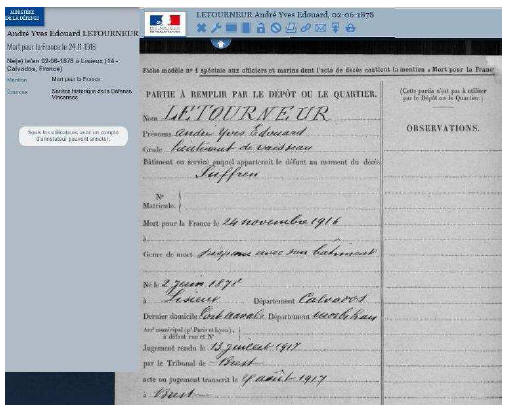 MINISTÈRE
DE LA DÉFENSE
André Yves Edouard LETOURNEUR
Mort pour la France le 24-11-1916
Né(e) le/en 02-06-1878 à Lisieux (14 -
Calvados, France)
Mention Mort pour la France
Source Service historique de la Défense,
Vincennes
Seuls les utilisateurs avec un compte
d'annotateur peuvent annoter.
LETOURNEUR André Yves Edouard, 02-06-1878
Fiche modèle n° 1 spéciale aux officiers et marins dont l'acte de décès contient la mention « Mort pour la Franc
PARTIE À REMPLIR PAR LE DÉPÔT OU LE QUARTIER.
(Cette partie n'est pas à utiliser
par le Dépôt ou le Quartier.)
Nom LETOURNEUR
Prénoms André Yves Edouard
OBSERVATIONS.
Grade Lieutenant de vaisseau
Bâtiment ou service auquel appartenait le défunt au moment du décès
Suffren
N°
Matricule.
Mort pour la France le 24 novembre 1916
à
Genre de mort disparu avec son bâtiment
Né le 2 juin 1878
à Lisieux Département Calvados
Dernier domicile Département Morbihan
Arr<sup>t</sup> municipal (p<sup>r</sup> Paris et Lyon),
à défaut rue et N°
Jugement rendu le 13 juillet 1917
par le Tribunal de Brest
acte ou jugement transcrit le août 1917
à Brest